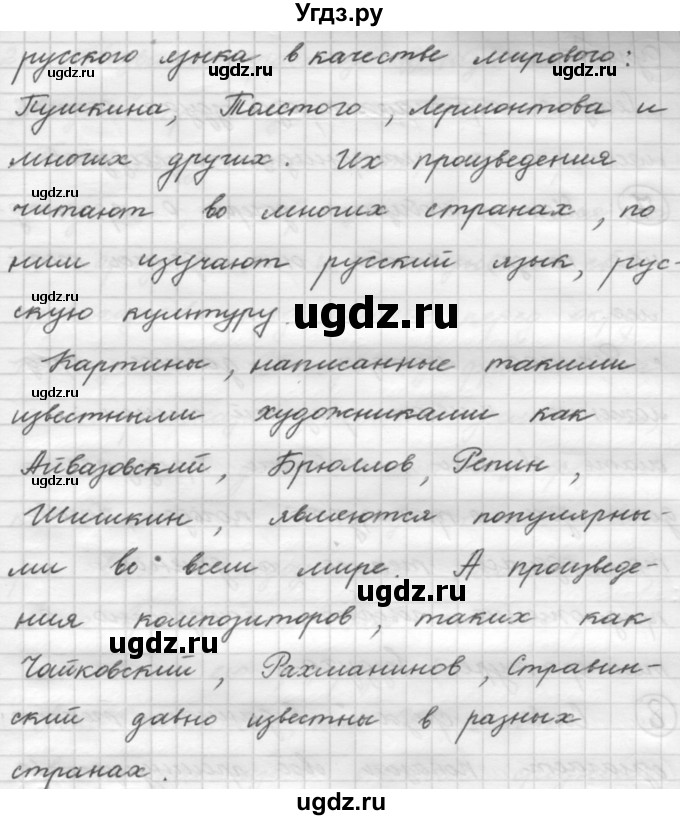 Угдз.ру
русского языка в качестве мирового:
Пушкина, Толстого, Лермонтова и
многих других. Их произведения
читают во многих странах, по
ним изучают русский язык, рус-
скую культуру.
Картины, написанные такими
известными художниками как
Айвазовский, Брюллов, Репин,
Шишкин, являются популярны-
ми во всем мире. А произведе-
ния композиторов, таких как
Чайковский, Рахманинов, Стравин-
ский давно известны в разных
странах.
ugdz.ru
ugdz.ru
ugdz.ru
ugdz.ru
ugdz.ru
ugdz.ru
ugdz.ru
ugdz.ru
ugdz.ru
ugdz.ru
ugdz.ru